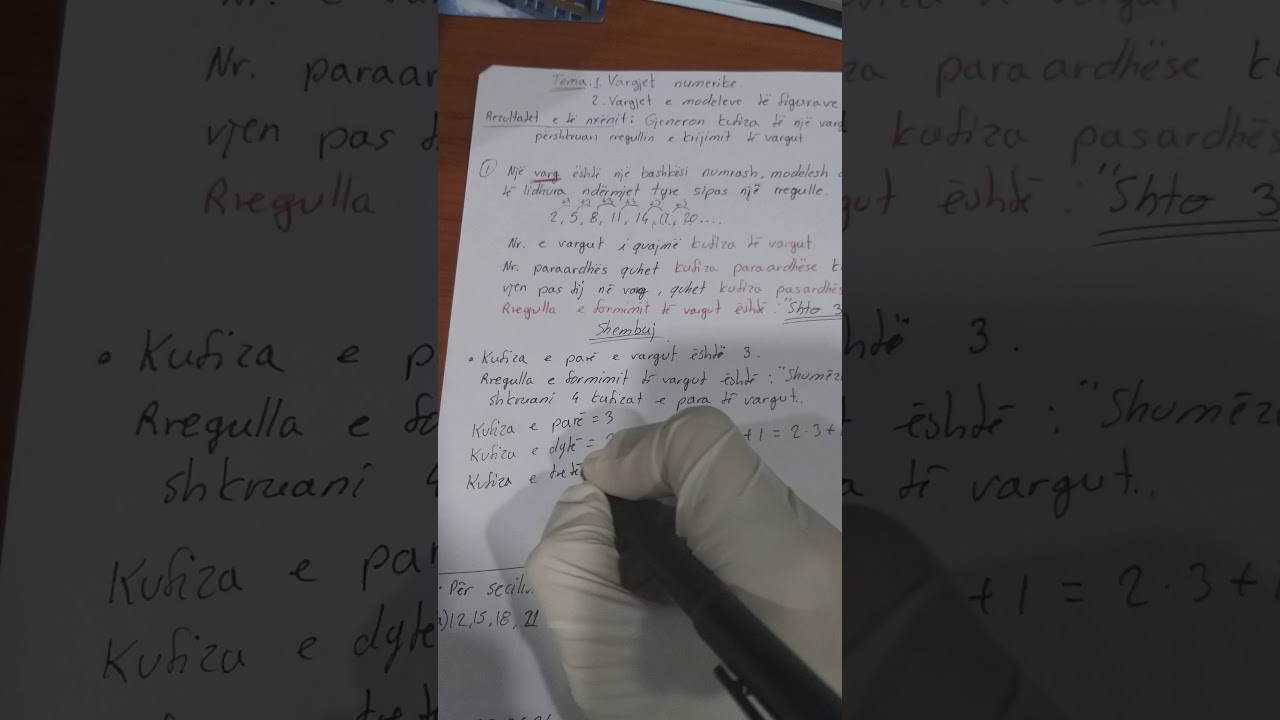 Tema: 1. Vargjet numerike.
2. Vargjet e modeleve të figurave
Rezultatet e të nxënit: Gjeneron kufiza të një varg
përshkruan rregullin e krijimit të vargut
① Një varg është një bashkësi numrash, modelesh
të lidhura ndërmjet tyre sipas një rregulle.
+3 +3 +3 +3 +3 +3
2, 5, 8, 11, 14, 17, 20....
Nr. e vargut i quajmë kufiza të vargut
Nr. paraardhës quhet kufiza paraardhëse k
vjen pas tij në varg, quhet kufiza pasardhës
Rregulla e formimit të vargut është: "Shto 3
Shembuj
• Kufiza e parë e vargut është 3.
Rregulla e formimit të vargut është: "Shumëz
shkruani 4 kufizat e para të vargut..
Kufiza e parë = 3
Kufiza e dytë = +1 = 2·3+
Kufiza e tretë
• Për secilin
a) 12, 15, 18, 21